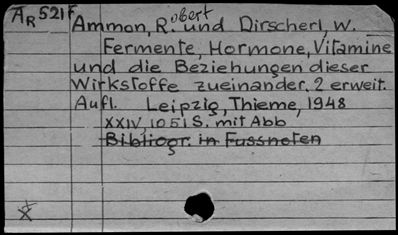 AR 521F
Ammon, Robert und Dirscherl, W.
Fermente, Hormone, Vitamine
und die Beziehungen dieser
Wirkstoffe zueinander. 2 erweit.
Aufl. Leipzig, Thieme, 1948
XXIV, 1051 S. mit Abb
Bibliogr. in Fussnoten